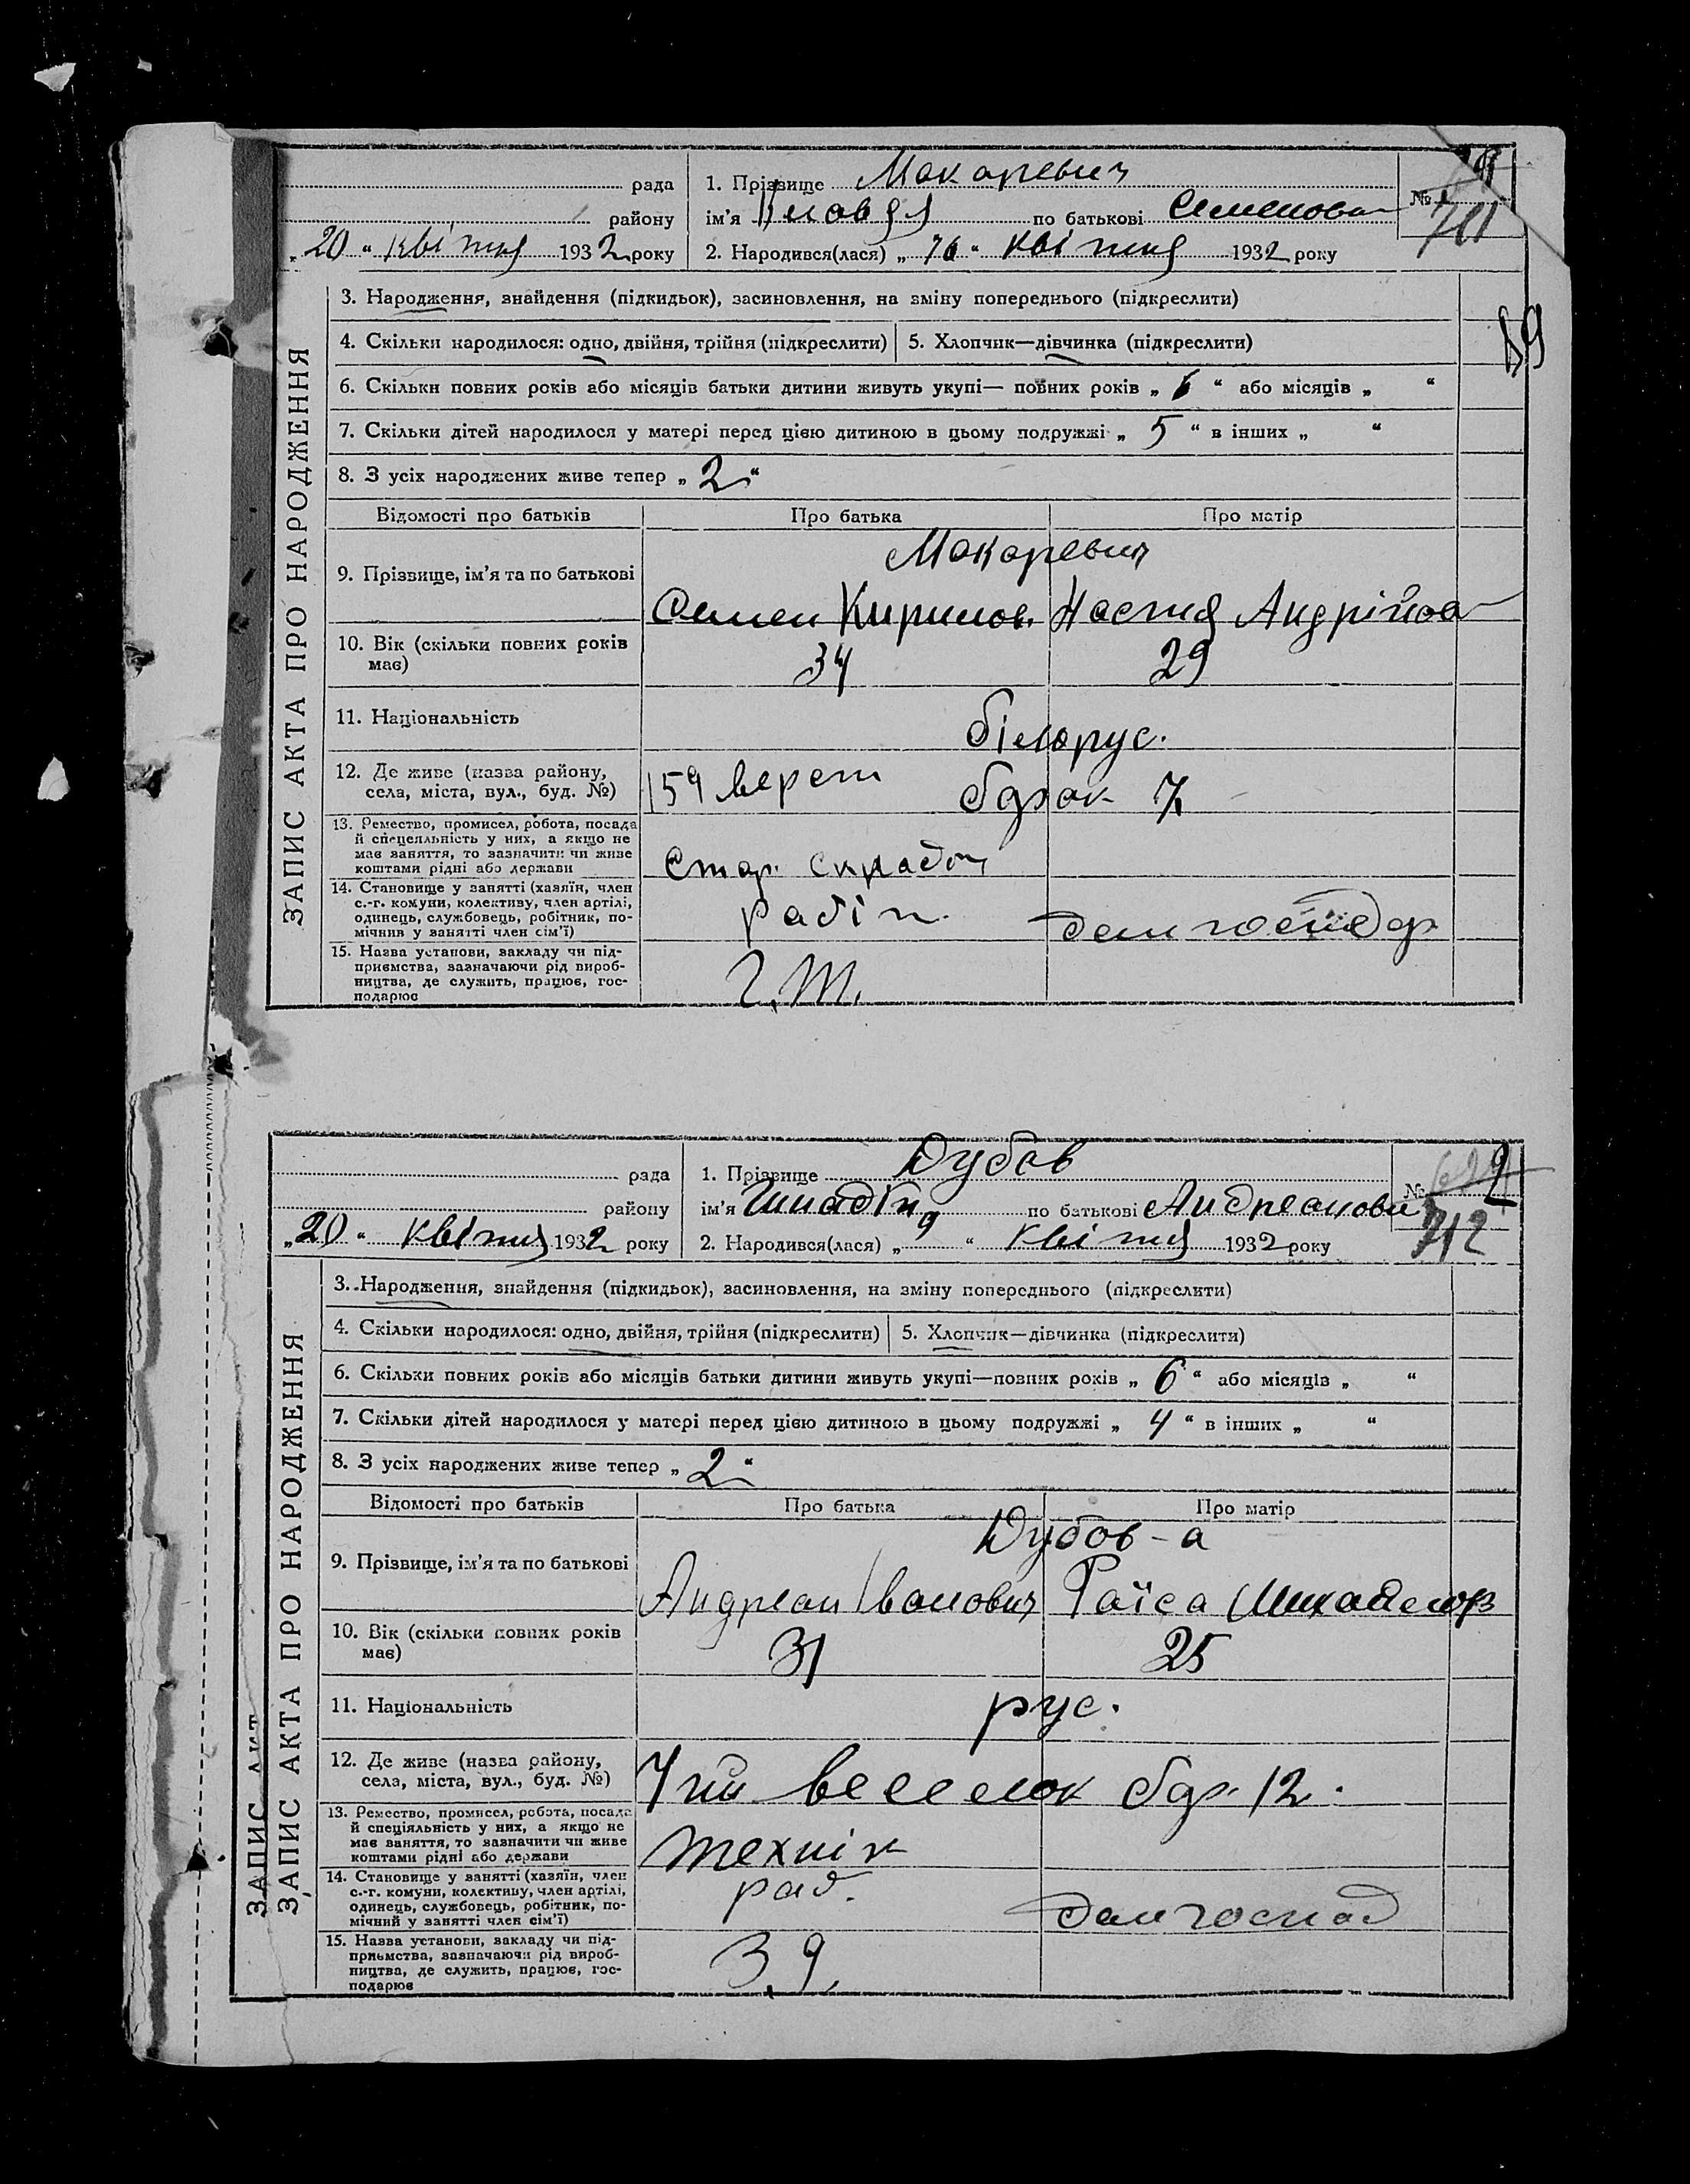 рада
району
„ 20 “ квітня 1932 року
1. Прізвище Макаревич
ім’я Клавдя по батькові Семенова
2. Народився(лася) „ 16 “ квітня 1932 року
№ 711
ЗАПИС АКТА ПРО НАРОДЖЕННЯ
3. Народження, знайдення (підкидьок), засиновлення, на зміну попереднього (підкреслити)
4. Скільки народилося: одно, двійня, трійня (підкреслити) 5. Хлопчик—дівчинка (підкреслити)
6. Скільки повних років або місяців батьки дитини живуть укупі— повних років „ 6 “ або місяців „ “
7. Скільки дітей народилося у матері перед цією дитиною в цьому подружжі „ 5 “ в інших „ “
8. З усіх народжених живе тепер „ 2 “
Відомості про батьків Про батька Про матір
Макаревич
9. Прізвище, ім’я та по батькові Семен Кирилов. Настя Андрійов
10. Вік (скільки повних років має) 34 29
11. Національність білорус.
12. Де живе (назва району, села, міста, вул., буд. №) 159 верст барак 7
13. Ремество, промисел, робота, посада
й спеціяльність у них, а якщо не
має заняття, то зазначити чи живе
коштами рідні або держави
Стар.
14. Становище у занятті (хазяїн, член
с.-г. комуни, колективу, член артілі,
одинець, службовець, робітник, по-
мічник у занятті член сім’ї)
робіт. дом господар
15. Назва установи, закладу чи під-
приємства, зазначаючи рід вироб-
ництва, де служить, працює, гос-
подарює
рада
району
„ 20 “ квітня 1932 року
1. Прізвище Дубов
ім’я Генадій по батькові Андреанович
2. Народився(лася) „ 9 “ квітня 1932 року
№ 712
ЗАПИС АКТ
ЗАПИС АКТА ПРО НАРОДЖЕННЯ
3. Народження, знайдення (підкидьок), засиновлення, на зміну попереднього (підкреслити)
4. Скільки народилося: одно, двійня, трійня (підкреслити) 5. Хлопчик—дівчинка (підкреслити)
6. Скільки повних років або місяців батьки дитини живуть укупі—повних років „ 6 “ або місяців „ “
7. Скільки дітей народилося у матері перед цією дитиною в цьому подружжі „ 4 “ в інших „ “
8. З усіх народжених живе тепер „ 2 “
Відомості про батьків Про батька Про матір
Дубов-а
9. Прізвище, ім’я та по батькові Андреан Іванович Раїса Михайлов
10. Вік (скільки повних років має) 31 25
11. Національність рус.
12. Де живе (назва району, села, міста, вул., буд. №) бар. 12.
13. Ремество, промисел, робота, посада
й спеціяльність у них, а якщо не
має заняття, то зазначити чи живе
коштами рідні або держави
технік
14. Становище у занятті (хазяїн, член
с.-г. комуни, колективу, член артілі,
одинець, службовець, робітник, по-
мічний у занятті член сім’ї)
роб. дом господ
15. Назва установи, закладу чи під-
приємства, зазначаючи рід вироб-
ництва, де служить, працює, гос-
подарює